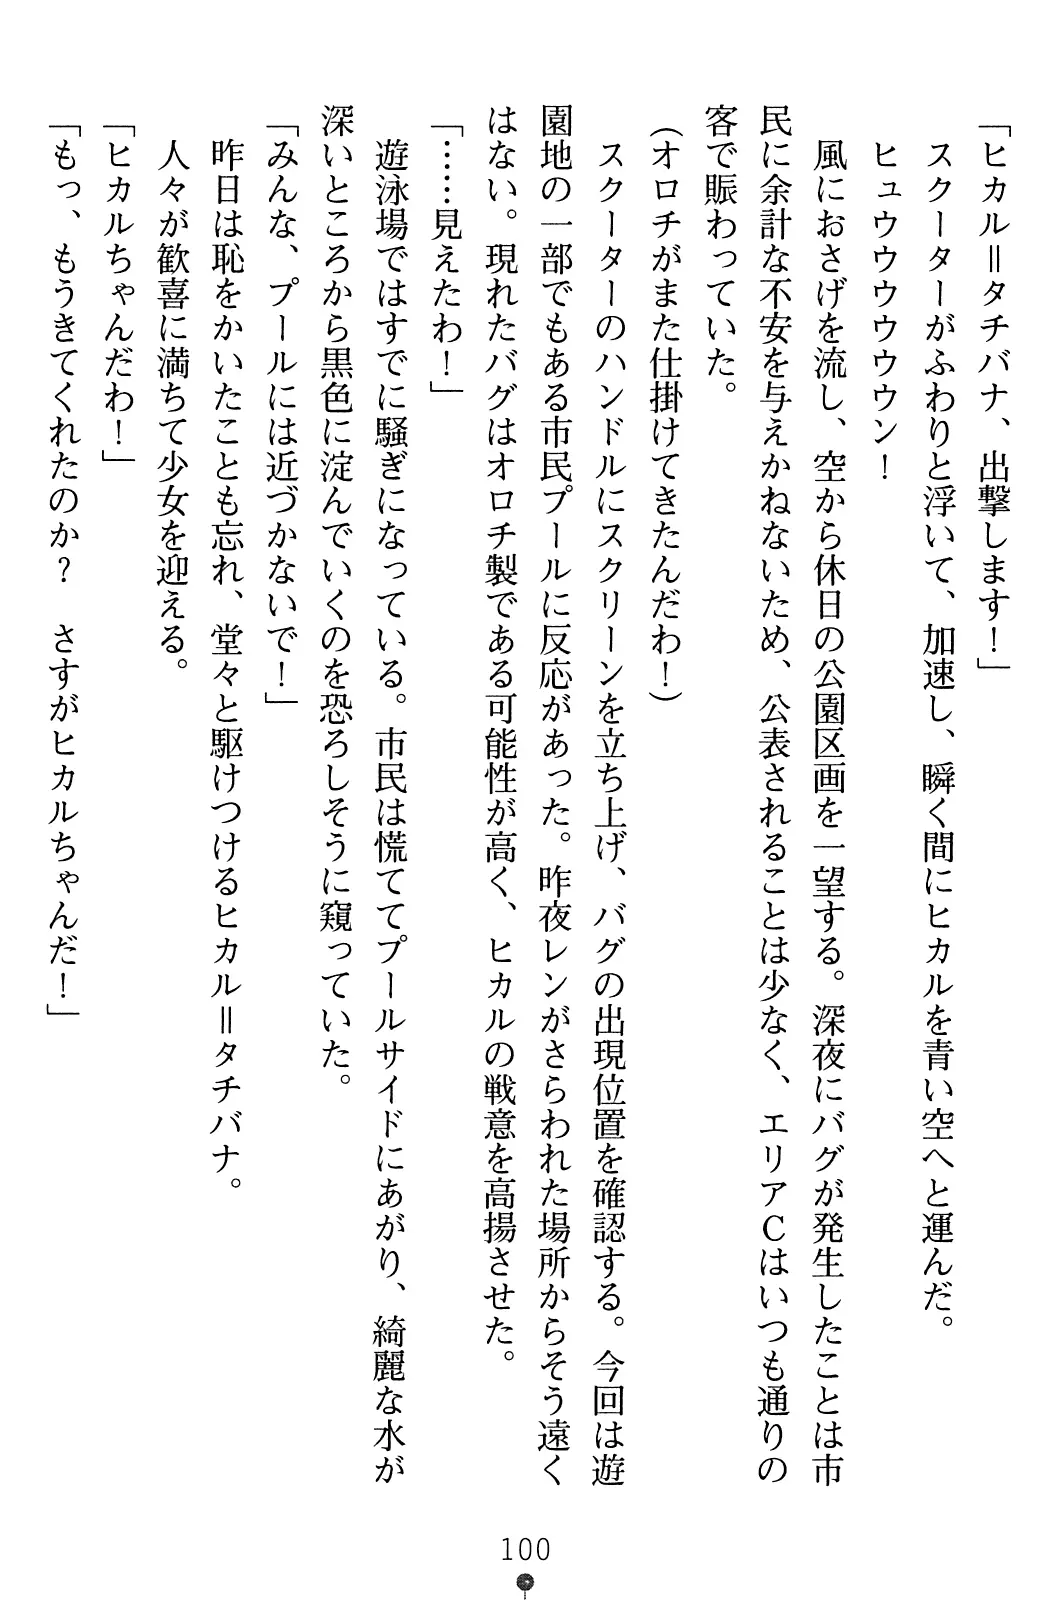 「ヒカル＝タチバナ、出撃します！」
　スクーターがふわりと浮いて、加速し、瞬く間にヒカルを青い空へと運んだ。
　ヒュウウウウウン！
　風におさげを流し、空から休日の公園区画を一望する。深夜にバグが発生したことは市
民に余計な不安を与えかねないため、公表されることは少なく、エリアＣはいつも通りの
客で賑わっていた。
(オロチがまた仕掛けてきたんだわ！)
　スクーターのハンドルにスクリーンを立ち上げ、バグの出現位置を確認する。今回は遊
園地の一部でもある市民プールに反応があった。昨夜レンがさらわれた場所からそう遠く
はない。現れたバグはオロチ製である可能性が高く、ヒカルの戦意を高揚させた。
「……見えたわ！」
　遊泳場ではすでに騒ぎになっている。市民は慌ててプールサイドにあがり、綺麗な水が
深いところから黒色に淀んでいくのを恐ろしそうに窺っていた。
「みんな、プールには近づかないで！」
　昨日は恥をかいたことも忘れ、堂々と駆けつけるヒカル＝タチバナ。
　人々が歓喜に満ちて少女を迎える。
「ヒカルちゃんだわ！」
「もっ、もうきてくれたのか？　さすがヒカルちゃんだ！」
100